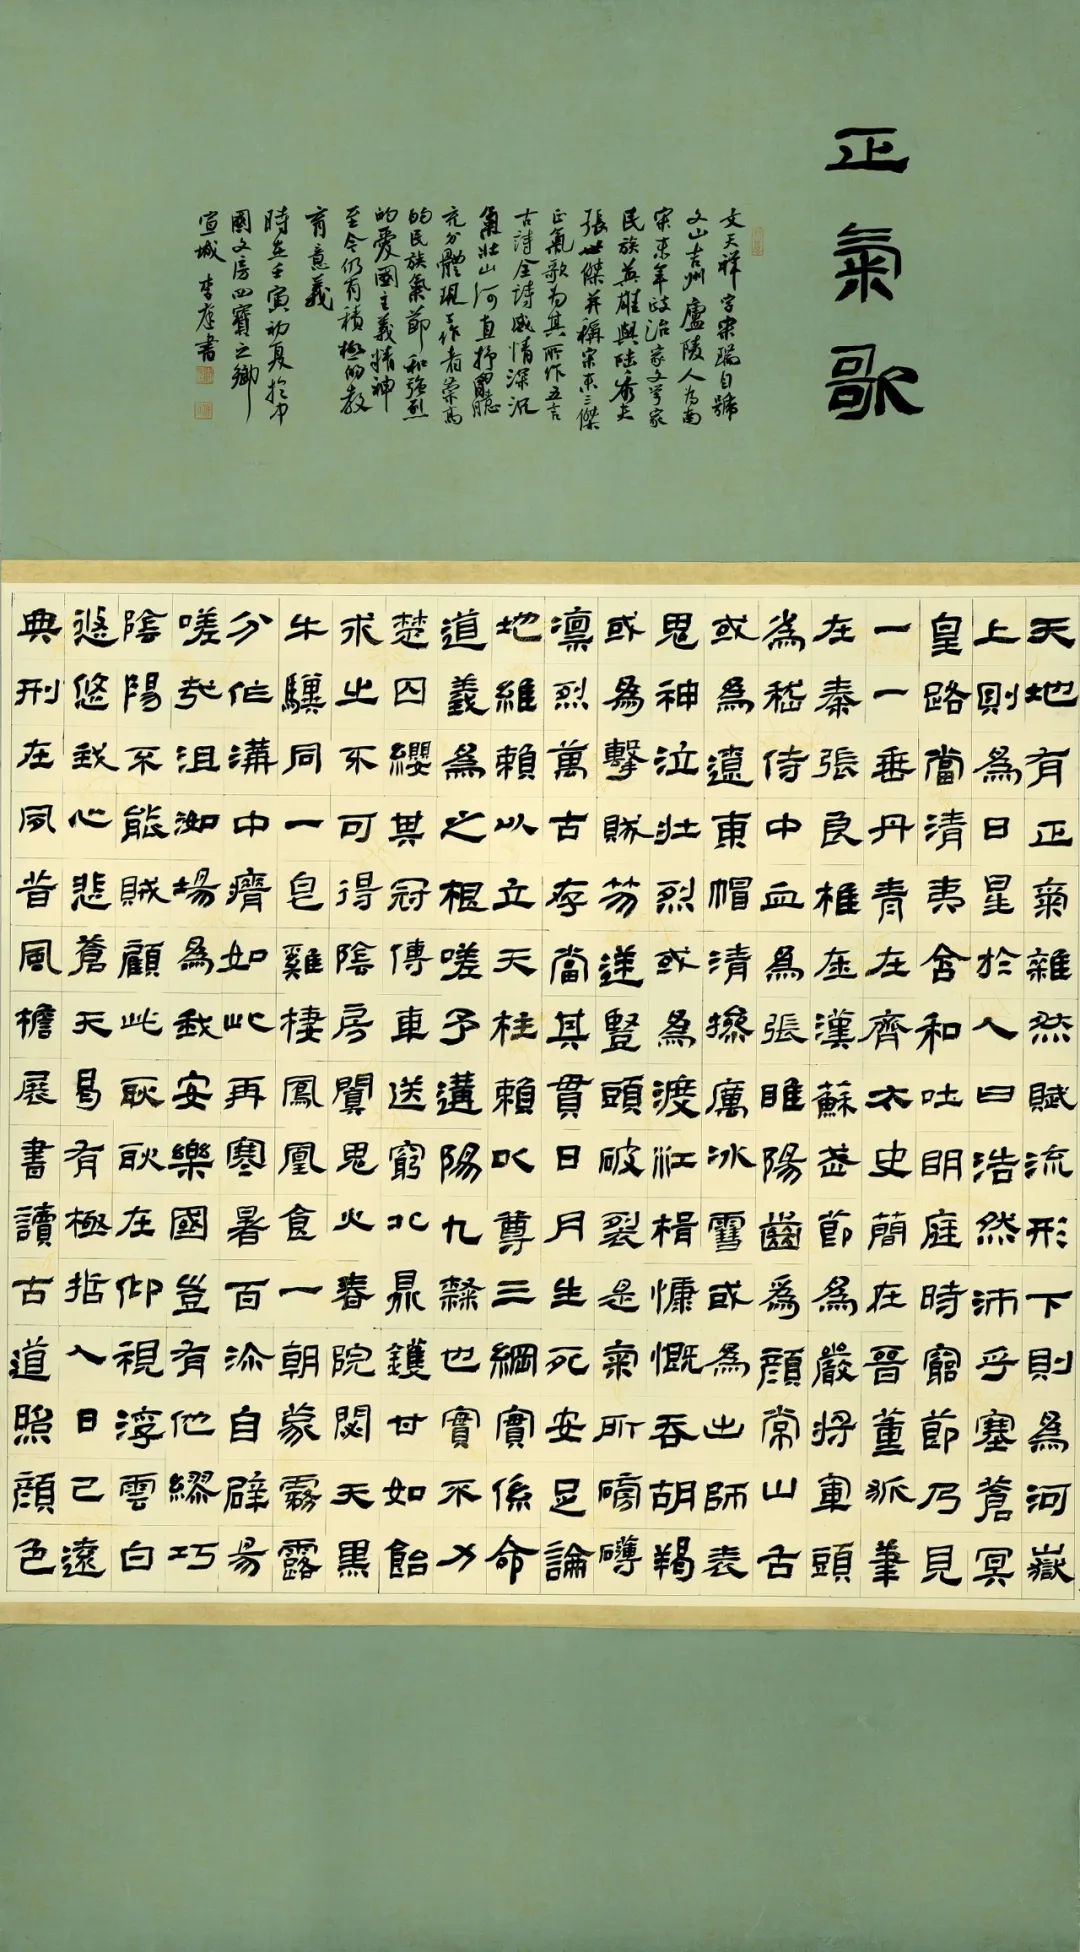 正氣歌
文天祥字宋瑞自號
文山吉州廬陵人為南
宋末年政治家文學家
民族英雄與陸秀夫
張世傑并稱宋末三傑
正氣歌為其所作五言
古詩全詩感情深沉
氣壯山河直抒胸臆
充分體現了作者崇高
的民族氣節和強烈
的愛國主義精神
至今仍有積極的教
育意義
時在壬寅初夏於中
國文房四寶之鄉
宣城 李 書
天地有正氣雜然賦流形下則為河嶽
上則為日星於人曰浩然沛乎塞蒼冥
皇路當清夷含和吐明庭時窮節乃見
一一垂丹青在齊太史簡在晉董狐筆
在秦張良椎在漢蘇武節為嚴將軍頭
為嵇侍中血為張睢陽齒為顏常山舌
或為遼東帽清操厲冰雪或為出師表
鬼神泣壯烈或為渡江楫慷慨吞胡羯
或為擊賊笏逆豎頭破裂是氣所磅礴
凜烈萬古存當其貫日月生死安足論
地維賴以立天柱賴以尊三綱實係命
道義為之根嗟予遘陽九隸也實不力
楚囚纓其冠傳車送窮北鼎鑊甘如飴
求之不可得陰房闃鬼火春院閟天黑
牛驥同一皂雞棲鳳凰食一朝蒙霧露
分作溝中瘠如此再寒暑百沴自辟易
嗟哉沮洳場為我安樂國豈有他繆巧
陰陽不能賊顧此耿耿在仰視浮雲白
悠悠我心悲蒼天曷有極哲人日已遠
典刑在夙昔風檐展書讀古道照顏色